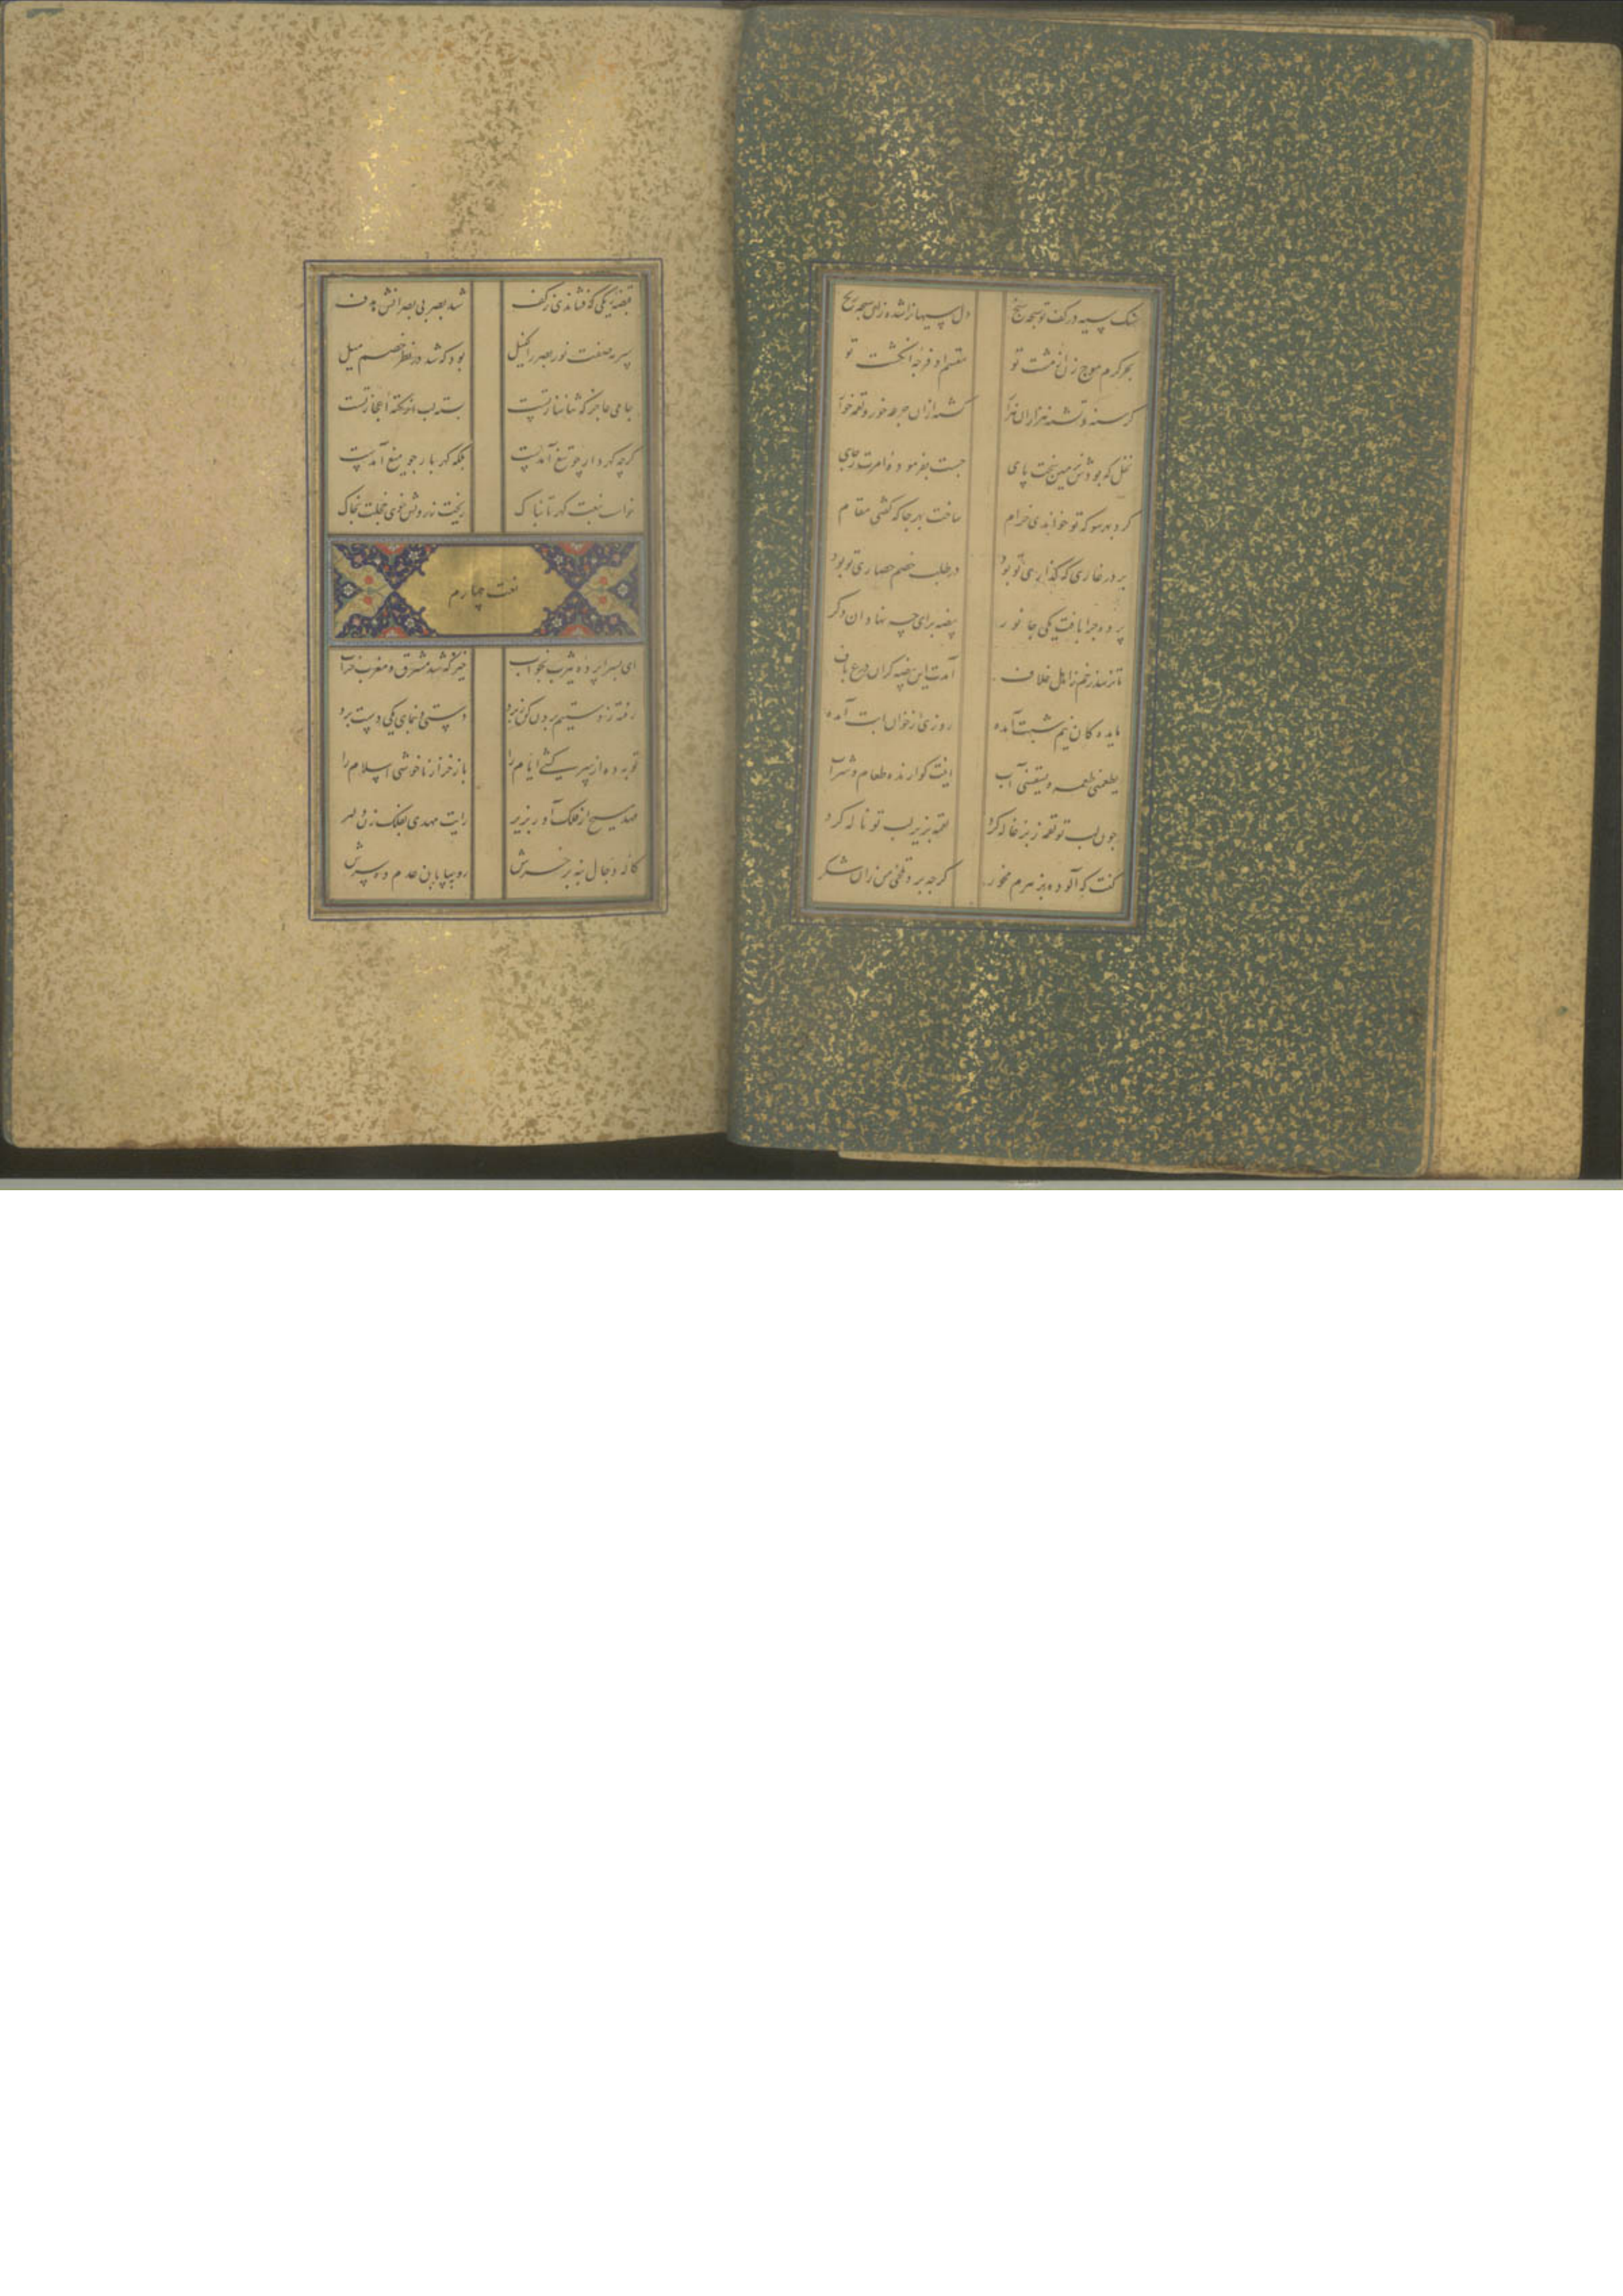 سنک سیه در کف تو سبحه سنج دل سیهانرا شده زان سبحه رنج
بحر کرم موج زن از مشت تو مقسم او فرجه انکشت تو
کرسنه و تشنه هزاران هزار کشته ازان جرعه خور و لقمه خوار
نخل که بودش بزمین سخت پای جست بفرموده امرت ز جای
کرد بهر سو که تو خواندی خرام ساخت بهر جا که کفتی مقام
بر در غاری که کذاری تو بود در طلب خصم حصاری تو بود
پرده چرا بافت یکی جانور بیضه برای چه نهاد ان دکر
تا نرسد زخم ز اهل خلاف آمدت این بیضه کر ان درع باف
مایده کان نیم شبت آمده روزی از خوان ابت آمده
یطعمنی طعمه و یسقینی آب اینت کوارنده طعام و شراب
چون لب تو لقمه ز بزغاله کرد لقمه بزیر لب تو ناله کرد
کفت که آلوده بزهرم مخور کرچه برد تلخی من زان شکر
قبضه ریکی که فشاندی ز کف شد بصر بی بصرانش هدف
سرمه صفت نور بصر را کفیل بود که شد در نظر خصم میل
جامی عاجز که ثناساز تست بسته لب از نکته اعجاز تست
کرچه کهردار چو تیغ آمدست بلکه کهربار چو میغ آمدست
خواست بنعتت کهر تابناک ریخت ز رویش خوی خجلت بخاک
نعت چهارم
ای بسراپرده یثرب بخواب خیز که شد مشرق و مغرب خراب
رفته ز دستیم برون کن ز برد دستی و بنمای یکی دست برد
توبه ده از سرکشی ایام را باز خر از ناخوشی اسلام را
مهد مسیح از فلک آور بزیر رایت مهدی بفلک زن دلیر
کاله دجال بنه بر خرش رو به بیابان عدم ده سرش